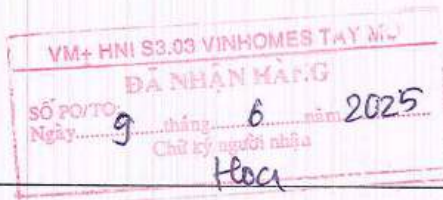 VM+ HNI S3.03 VINHOMES TAY MO
ĐÃ NHẬN HÀNG
SỐ PO/TO:
Ngày......9......tháng......6......năm 2025
Chữ ký người nhận
Hoa